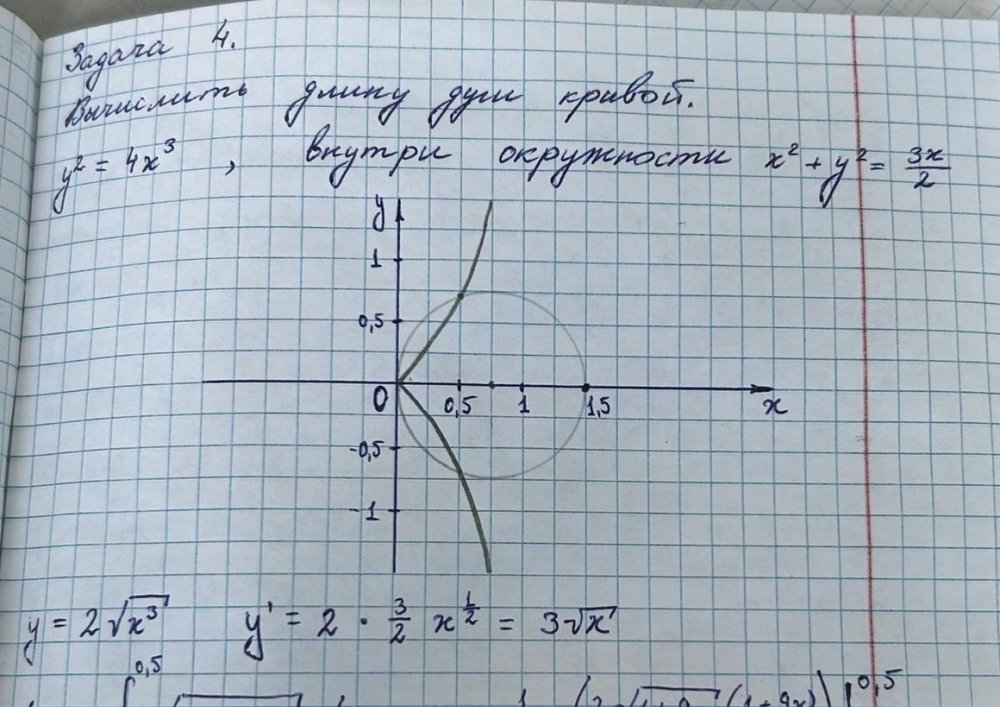 Задача 4.
Вычислить длину дуги кривой.
y² = 4x³ , внутри окружности x² + y² = 3x/2
y
1
0,5
0 0,5 1 1,5 x
-0,5
-1
y = 2√x³ y' = 2 · 3/2 x^(1/2) = 3√x
0,5 0,5
(1+9x)